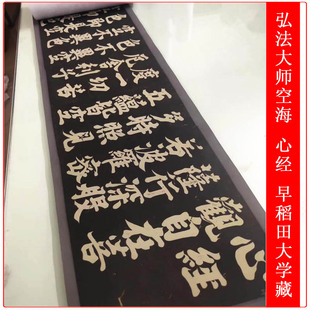 弘法大师空海 心经 早稻田大学藏
心經
觀自在菩
薩行深般
若波羅蜜
多時照見
五蘊皆空
度一切苦
厄舍利子
色不異空
空不異色